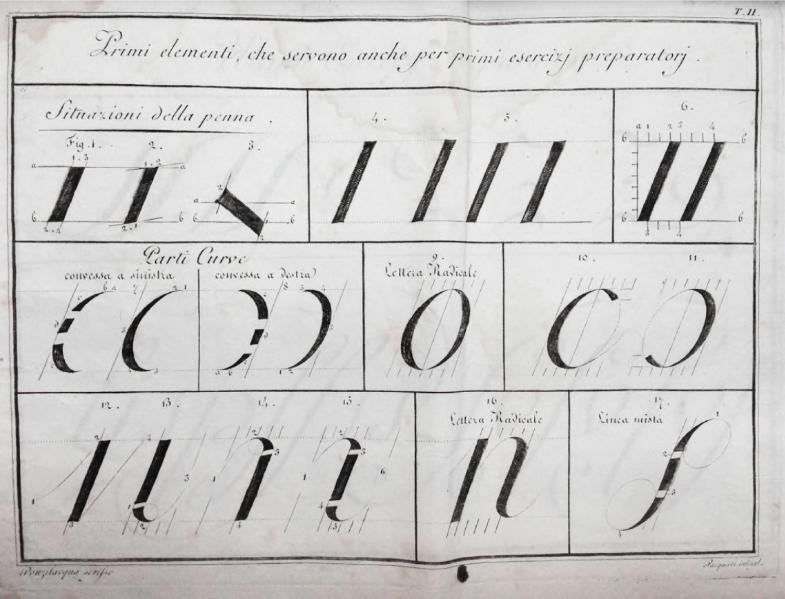 T. II.
Primi elementi, che servono anche per primi esercizj preparatorj.
Situazioni della penna.
Fig. 1. 2. 3.
4. 5.
6.
Parti Curve
convessa a sinistra
convessa a destra
9.
Lettera Radicale
10. 11.
12. 13. 14. 15.
16.
Lettera Radicale
17.
Linea mista
scrisse